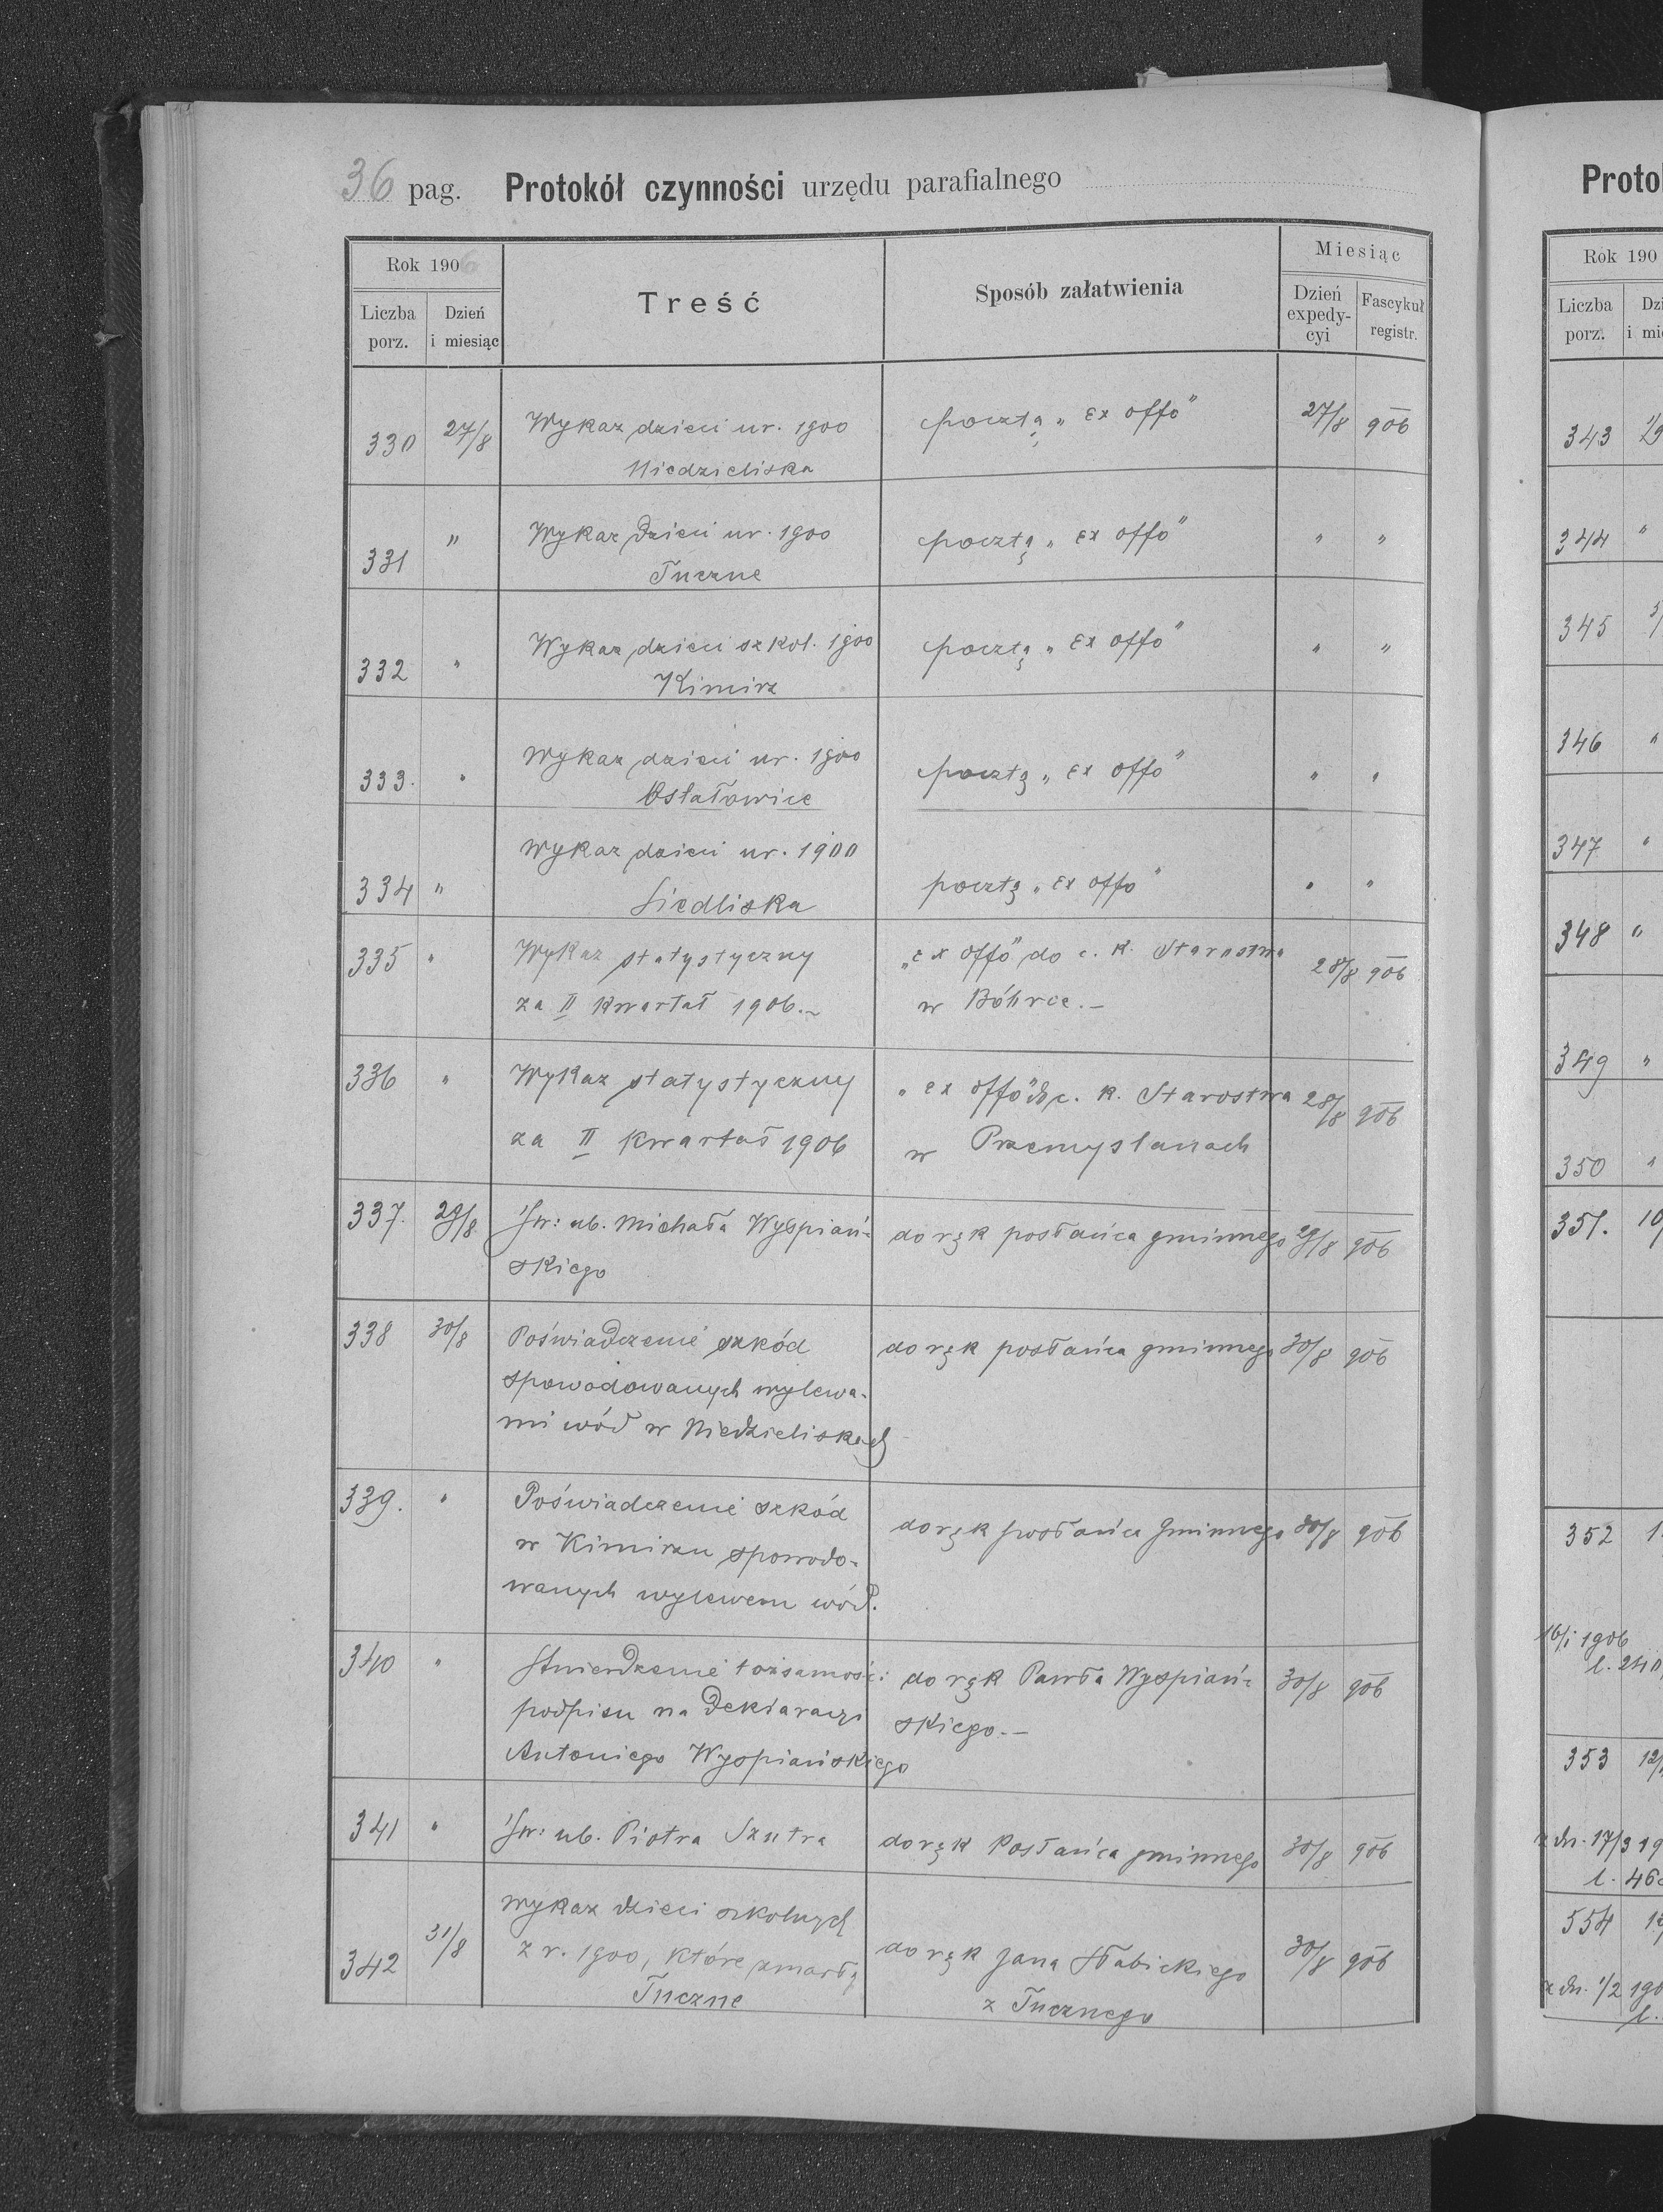 36 pag. Protokół czynności urzędu parafialnego
Rok 1906
Liczba porz.
Dzień i miesiąc
Treść
Sposób załatwienia
Miesiąc
Dzień expedycyi
Fascykuł registr.
330 27/8 Wykaz dzieci ur. 1900 pocztą „ex offo" 27/8 906
Niedzieliska
331 " Wykaz dzieci ur. 1900 pocztą „ex offo" " "
Tuczne
332 " Wykaz dzieci szkol. 1900 pocztą „ex offo" " "
Kimirz
333. " Wykaz dzieci ur. 1900 pocztą „ex offo" " "
Ostałowice
334 " Wykaz dzieci ur. 1900
Siedliska pocztą „ex offo" " "
335 " Wykaz statystyczny „ex offo" do c. k. Starostwa 28/8 906
za II kwartał 1906.- w Bóbrce.-
336 " Wykaz statystyczny „ex offo" do c. k. Starostwa 28/8 906
za II kwartał 1906 w Przemyslanach
337. 29/8 Św: ub. Michała Wyspiań- do rąk posłańca gminnego 29/8 906
skiego
338 30/8 Poświadczenie szkód do rąk posłańca gminnego 30/8 906
spowodowanych wylewa-
mi wód w Niedzieliskach
339. " Poświadczenie szkód do rąk posłańca gminnego 30/8 906
w Kimirzu spowodo-
wanych wylewem wód.
340 " Stwierdzenie tożsamości do rąk Pawła Wyspiań- 30/8 906
podpisu na deklaracyi skiego.-
Antoniego Wyspiańskiego
341 " Św: ub. Piotra Szutra do rąk Posłańca gminnego 30/8 906
342 31/8 Wykaz dzieci szkolnych do rąk Jana Słabickiego 30/8 906
z r. 1900, które zmarły z Tucznego
Tuczne
Proto
Rok 190
Liczba porz.
343
344 "
345
346 "
347 "
348 "
349 "
350 "
351. 10/
352
16/I 1906
l. 240
353 12/
z dn. 17/3 19
l. 46
554
z dn. 1/2 190
l.